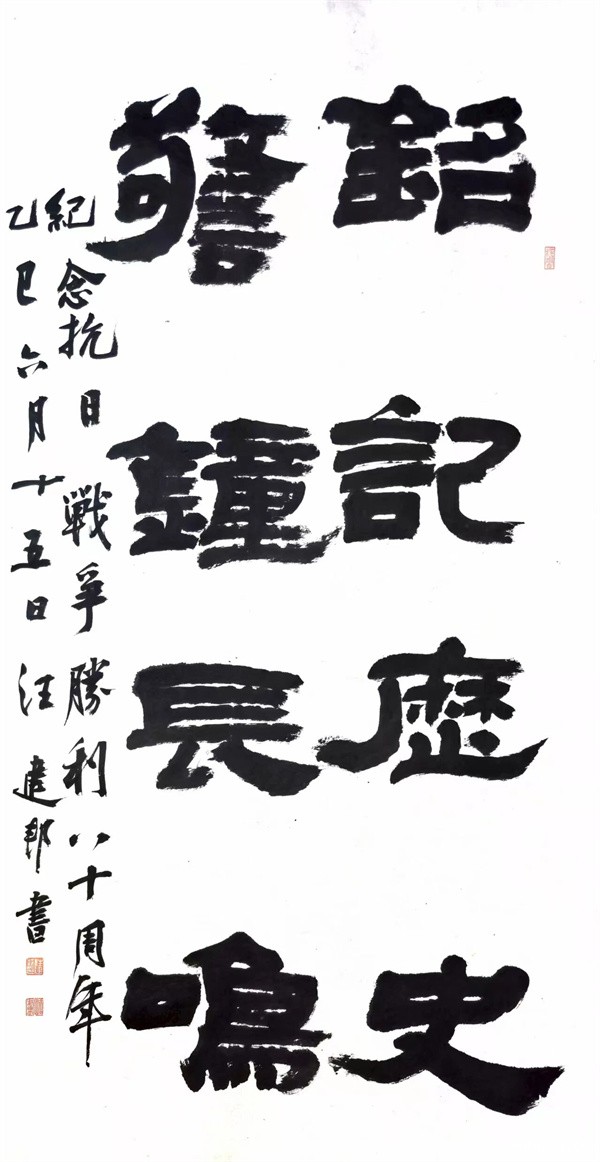 銘記歷史
警鐘長鳴
紀念抗日戰爭勝利八十周年
乙巳六月十五日汪建邦書